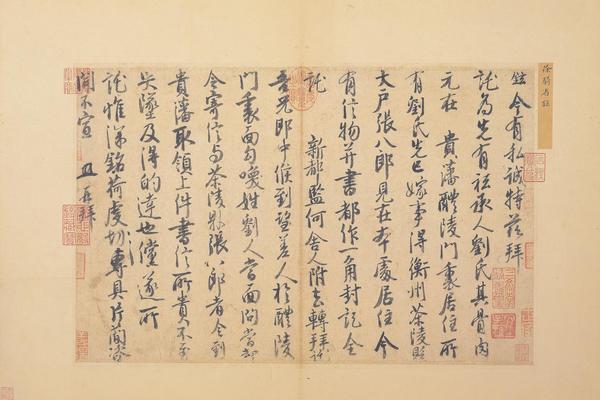 徐騎省鉉
鉉今有私誠特茲拜
託為先有祗承人劉氏其骨肉
元在 貴藩醴陵門裏居住所
有劉氏先已嫁事得衡州茶陵縣
大戶張八郎見在本處居住今
有信物并書都作一角封記全
託 新都監何舍人附去轉拜託
吾兄郎中候到望差人於醴陵
門裏面勾喚姓劉人當面問當却
令寄信與茶陵縣張八郎者令到
貴藩取領上件書信所貴不至
失墜及得的達也儻遂所
託惟深銘荷虔切專具片簡諮
聞不宣 再拜